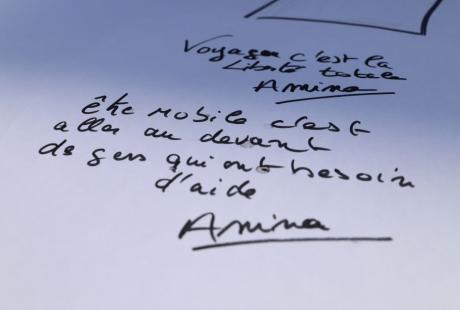 Voyager c'est la
Liberté totale
Amina
être mobile c'est
aller au devant
de gens qui ont besoin
d'aide
Amina